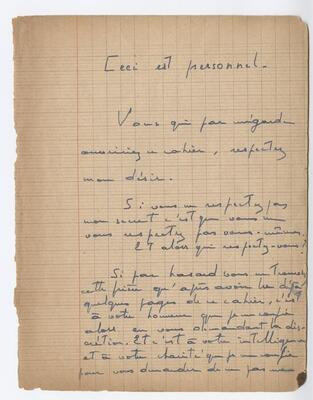 Ceci est personnel.
Vous qui par mégarde
ouvririez ce cahier, respectez
mon désir.
Si vous ne respectez pas
mon secret c'est que vous ne
vous respectez pas vous-même.
Et alors qui respectez-vous?
Si par hasard vous ne trouvez
cette prière qu'après avoir lu déjà
quelques pages de ce cahier, c'est
à votre honneur que je me confie
alors en vous demandant la dis-
crétion. Et c'est à votre intelligence
et à votre charité que je me confie
pour vous demander de ne pas me